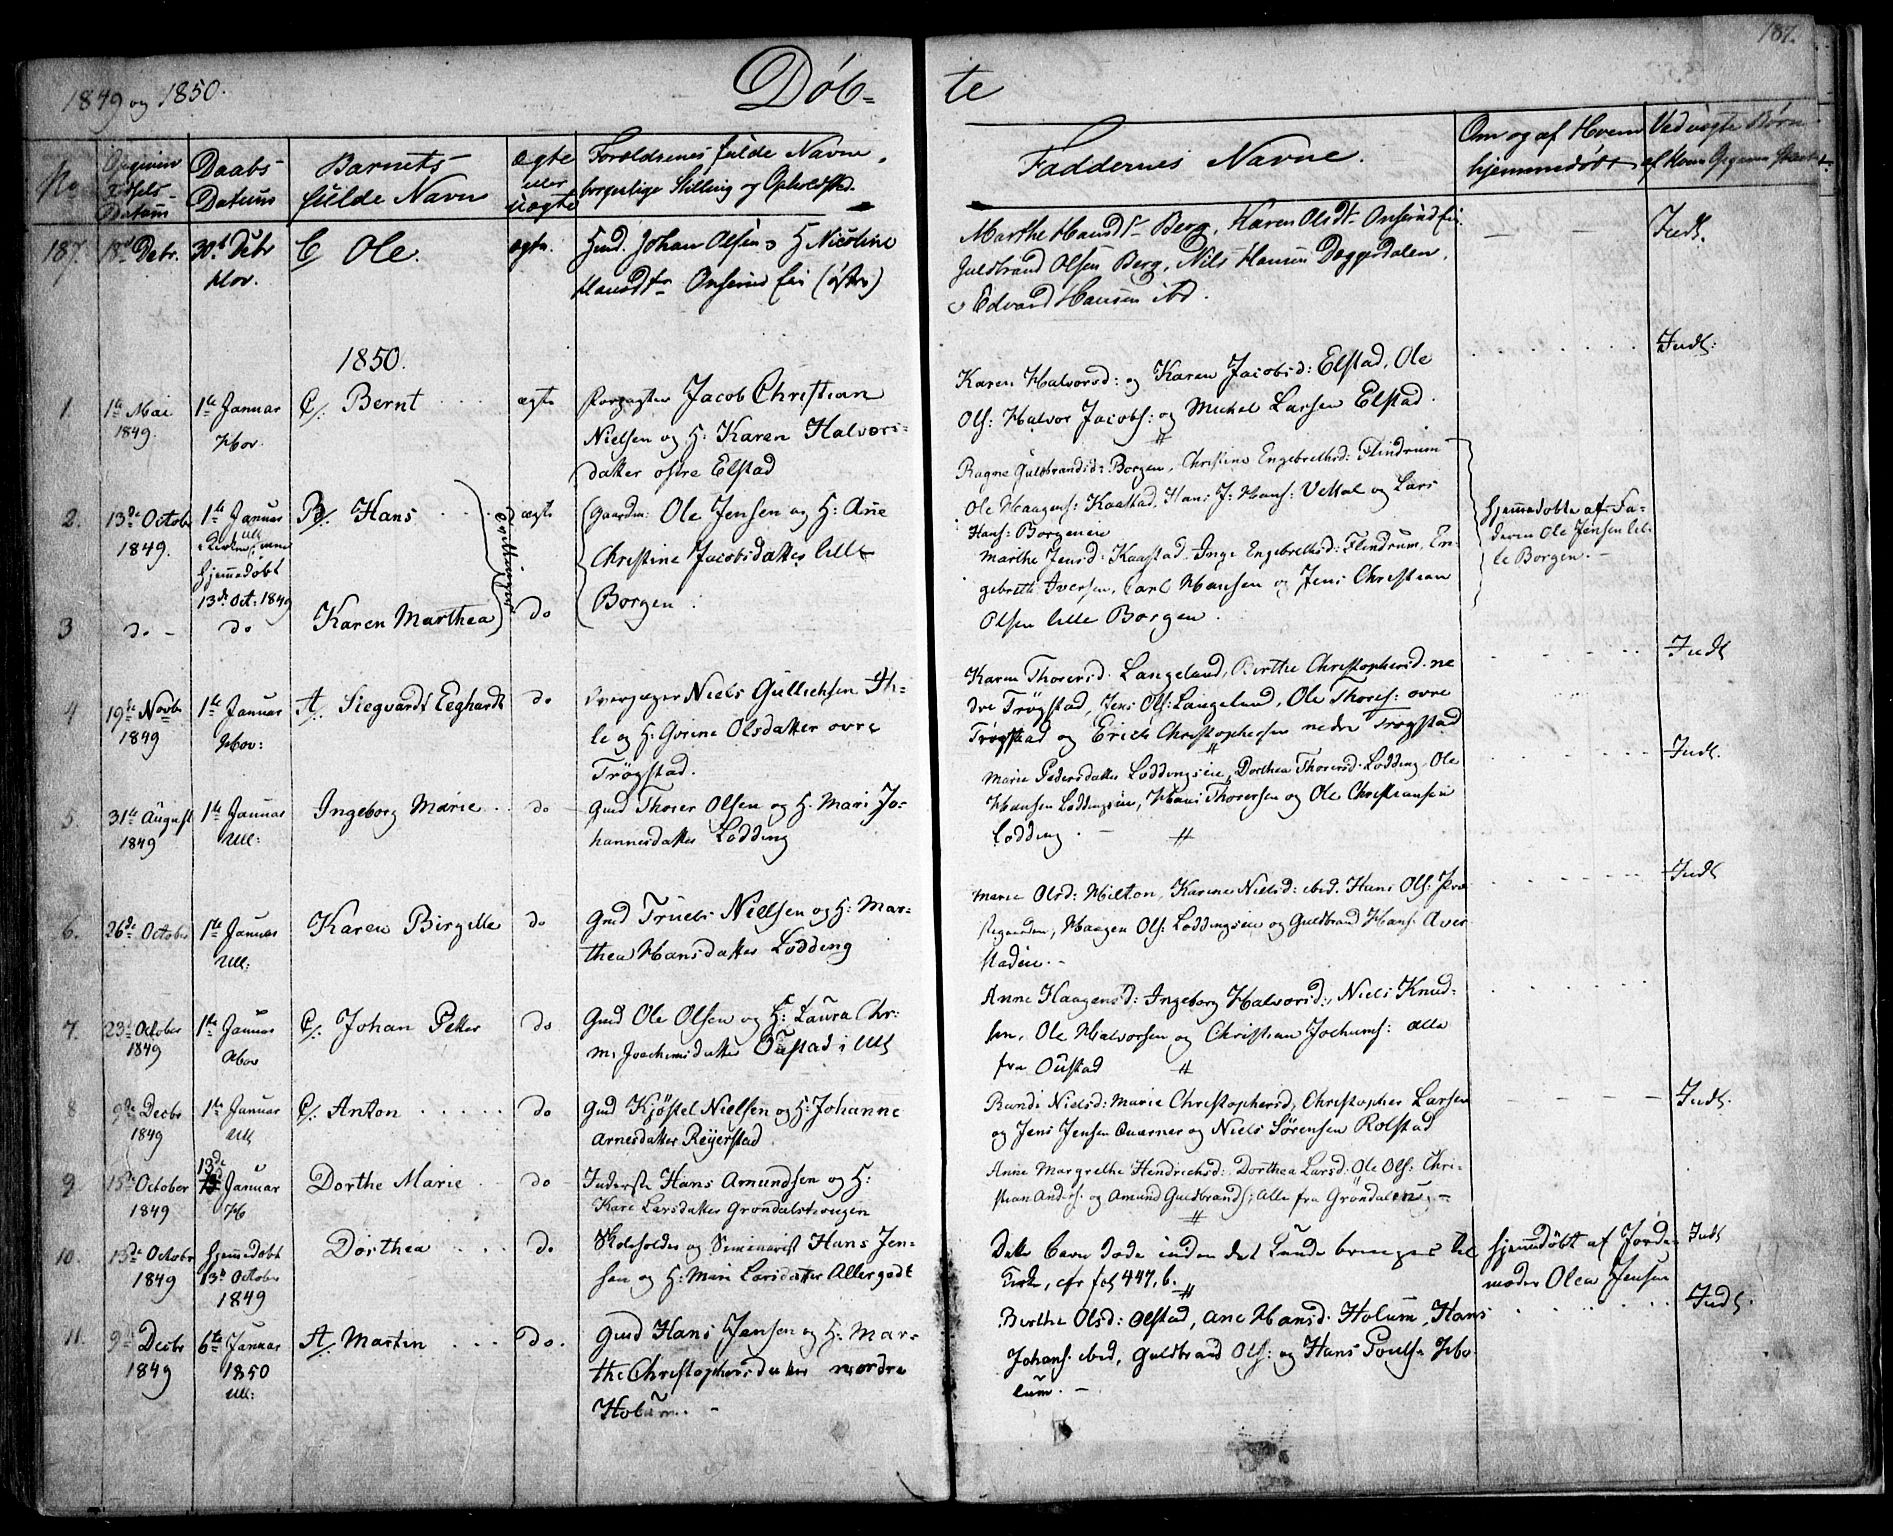 187.
1849 og 1850.
Döb-
te
No
Angiven Födsels-Datum
Daabs Datum
Barnets fulde Navn
ægte eller uægte
Forældrenes fulde Navne, borgerlige Stilling og Opholdsted.
Faddernes Navne.
Om og af Hvem hjemmedöbt
Ved uægte Börn
187.
18d Debr.
30t Debr
Hov.
C Ole.
ægte.
Gmd. Johan Olsen o H Nicoline
Hansdtr Onserud Eie (östre)
Marthe Hansdtr Berg, Karen Olsdtr Onserud Eie
Guldbrand Olsen Berg, Nils Hansen Dæggerdalen,
o Edvard Hansen ibd.
Indt.
1850.
1.
1te Mai
1849.
1te Januar
Hov.
C/: Bernt
ægte
Forpagter Jacob Christian
Nielsen og H: Karen Halvors-
datter östre Elstad
Karen Halvorsd: og Karen Jacobsd: Elstad, Ole
Ols: Halvor Jacobs: og Mickel Larsen Elstad.
Indt:
2.
13de October
1849.
1te Januar
Ull
i Kirken,
hjemmedöbt
13de Oct: 1849
B/: Hans
Tvillinger
ægte
Gaardm: Ole Jensen og H: Ane
Christine Jacobsdatter lille
Borgen
Ragne Guldbrandsd: Borgen, Christine Engebrethsd: Flindrum
Ole Haagens: Kaastad, Hans J: Hans: Vettal og Lars
Hans: Borgeneie
hjemmedöbte af Fa-
deren Ole Jensen lil-
le Borgen.-
3
do -
do
Karen Marthea
do
Marthe Jensd: Kaastad, Inge Engebrethsd: Flindrum, En-
gebreth Iversen, Carl Hansen og Jens Christian
Olsen lille Borgen.
4
19de Novbr
1849
1te Januar
Hov:
A/: Siegvardt Eeghardt
do
Overjæger Niels Gullichsen Th-
le og H: Gorine Olsdatter övre
Trögstad.
Karen Thorersd. Langeland, Birthe Christophersd. ne
dre Trögstad, Jens Ols: Langeland, Ole Thores: övre
Trögstad og Erich Christophersen nedre Trögstad
Indt
5.
31te August
1849
1te Januar
Ull:
Ingeborg Marie
do
Gmd Thorer Olsen og H. Mari Jo-
hannesdatter Lodding
Marie Pedersdatter Loddingseie, Dorthea Thorersd: Lodding, Ole
Hansen Loddingseie, Hans Thorersen og Ole Christiansen
Lodding.
Indt.
6.
26de October
1te Januar
Ull:
Karen Birgitte
do
Gmd Truels Nielsen og H: Mar-
thea Hansdatter Lodding
Marie Olsd: Hilton, Karine Nielsd: ibid. Hans Ols: Præ
stegaarden, Haagen Ols: Loddingseie og Guldbrand Hans: Aver
stadeie.-
Indt
7.
23de October
1849
1te Januar
Hov
C/: Johan Petter
do
Gmd Ole Olsen og H: Laura Chr-
m: Joachimsdatter Oustad i Ull
Anne Haagensd: Ingeborg Halvorsd:, Niels Knud-
sen, Ole Halvorsen og Christian Jochums: alle
fra Oustad
8
9de Decbr
1849
1te Januar
Ull
C/: Anton
do
Gmd Kjöstel Nielsen og H: Johanne
Arnesdatter Reijerstad
Randi Nielsd: Marie Christophersd; Christopher Larsen
og Jens Jensen Quarner og Niels Sörensen Rolstad
Indt.
9.
15de October
1849
13de
Januar
H
Dorthe Marie
do
Inderste Hans Amundsen og H:
Kari Larsdatter Gröndalstvangen
Anne Margrethe Hendrichsd: Dorthea Larsd: Ole Ols: Chri-
stian Anders: og Amund Guldbrands; Alle fra Gröndalen
10.
13de October
1849
hjemmedöbt
13de October
1849
Dorthea
do
Skoleholder og Seminarist Hans Jen-
sen og H: Mari Larsdatter Allergodt
Dette Barn döde inden det kunde bringes til
Kirke, cfr fol 447, b.
hjemmedöbt af Jorde-
moder Olea Jensen
Indt
11.
9de Decbr
1849
6te Januar
1850
Ull:
A/: Martin
do.
Gmd Hans Jensen og H: Mar-
the Christophersdatter nordre
Holum.
Birthe Olsd: Olstad, Ane Hansd: Holum, Hans
Johans. ibid, Guldbrand Ols: og Hans Pouls: Ho
lum.-
Indt.